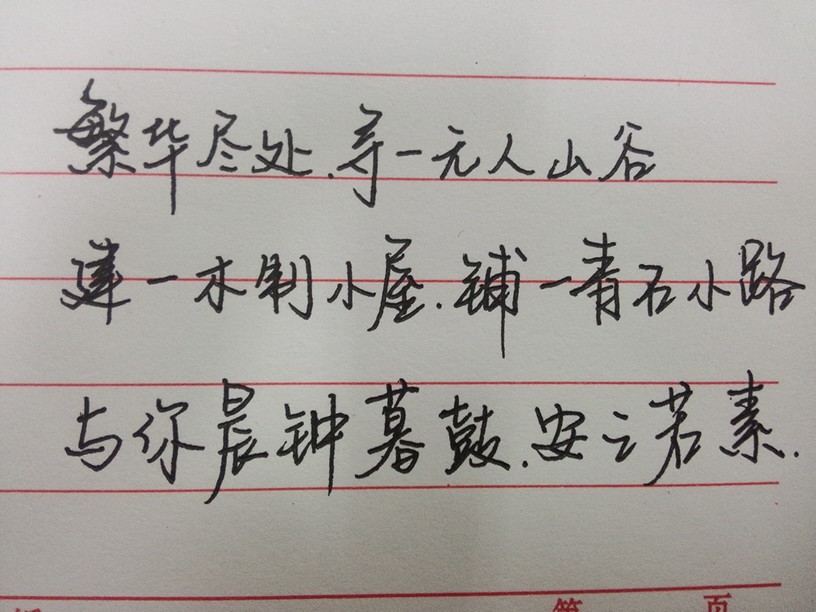 繁华尽处.寻一无人山谷
建一木制小屋.铺一青石小路
与你晨钟暮鼓.安之若素.
第 页